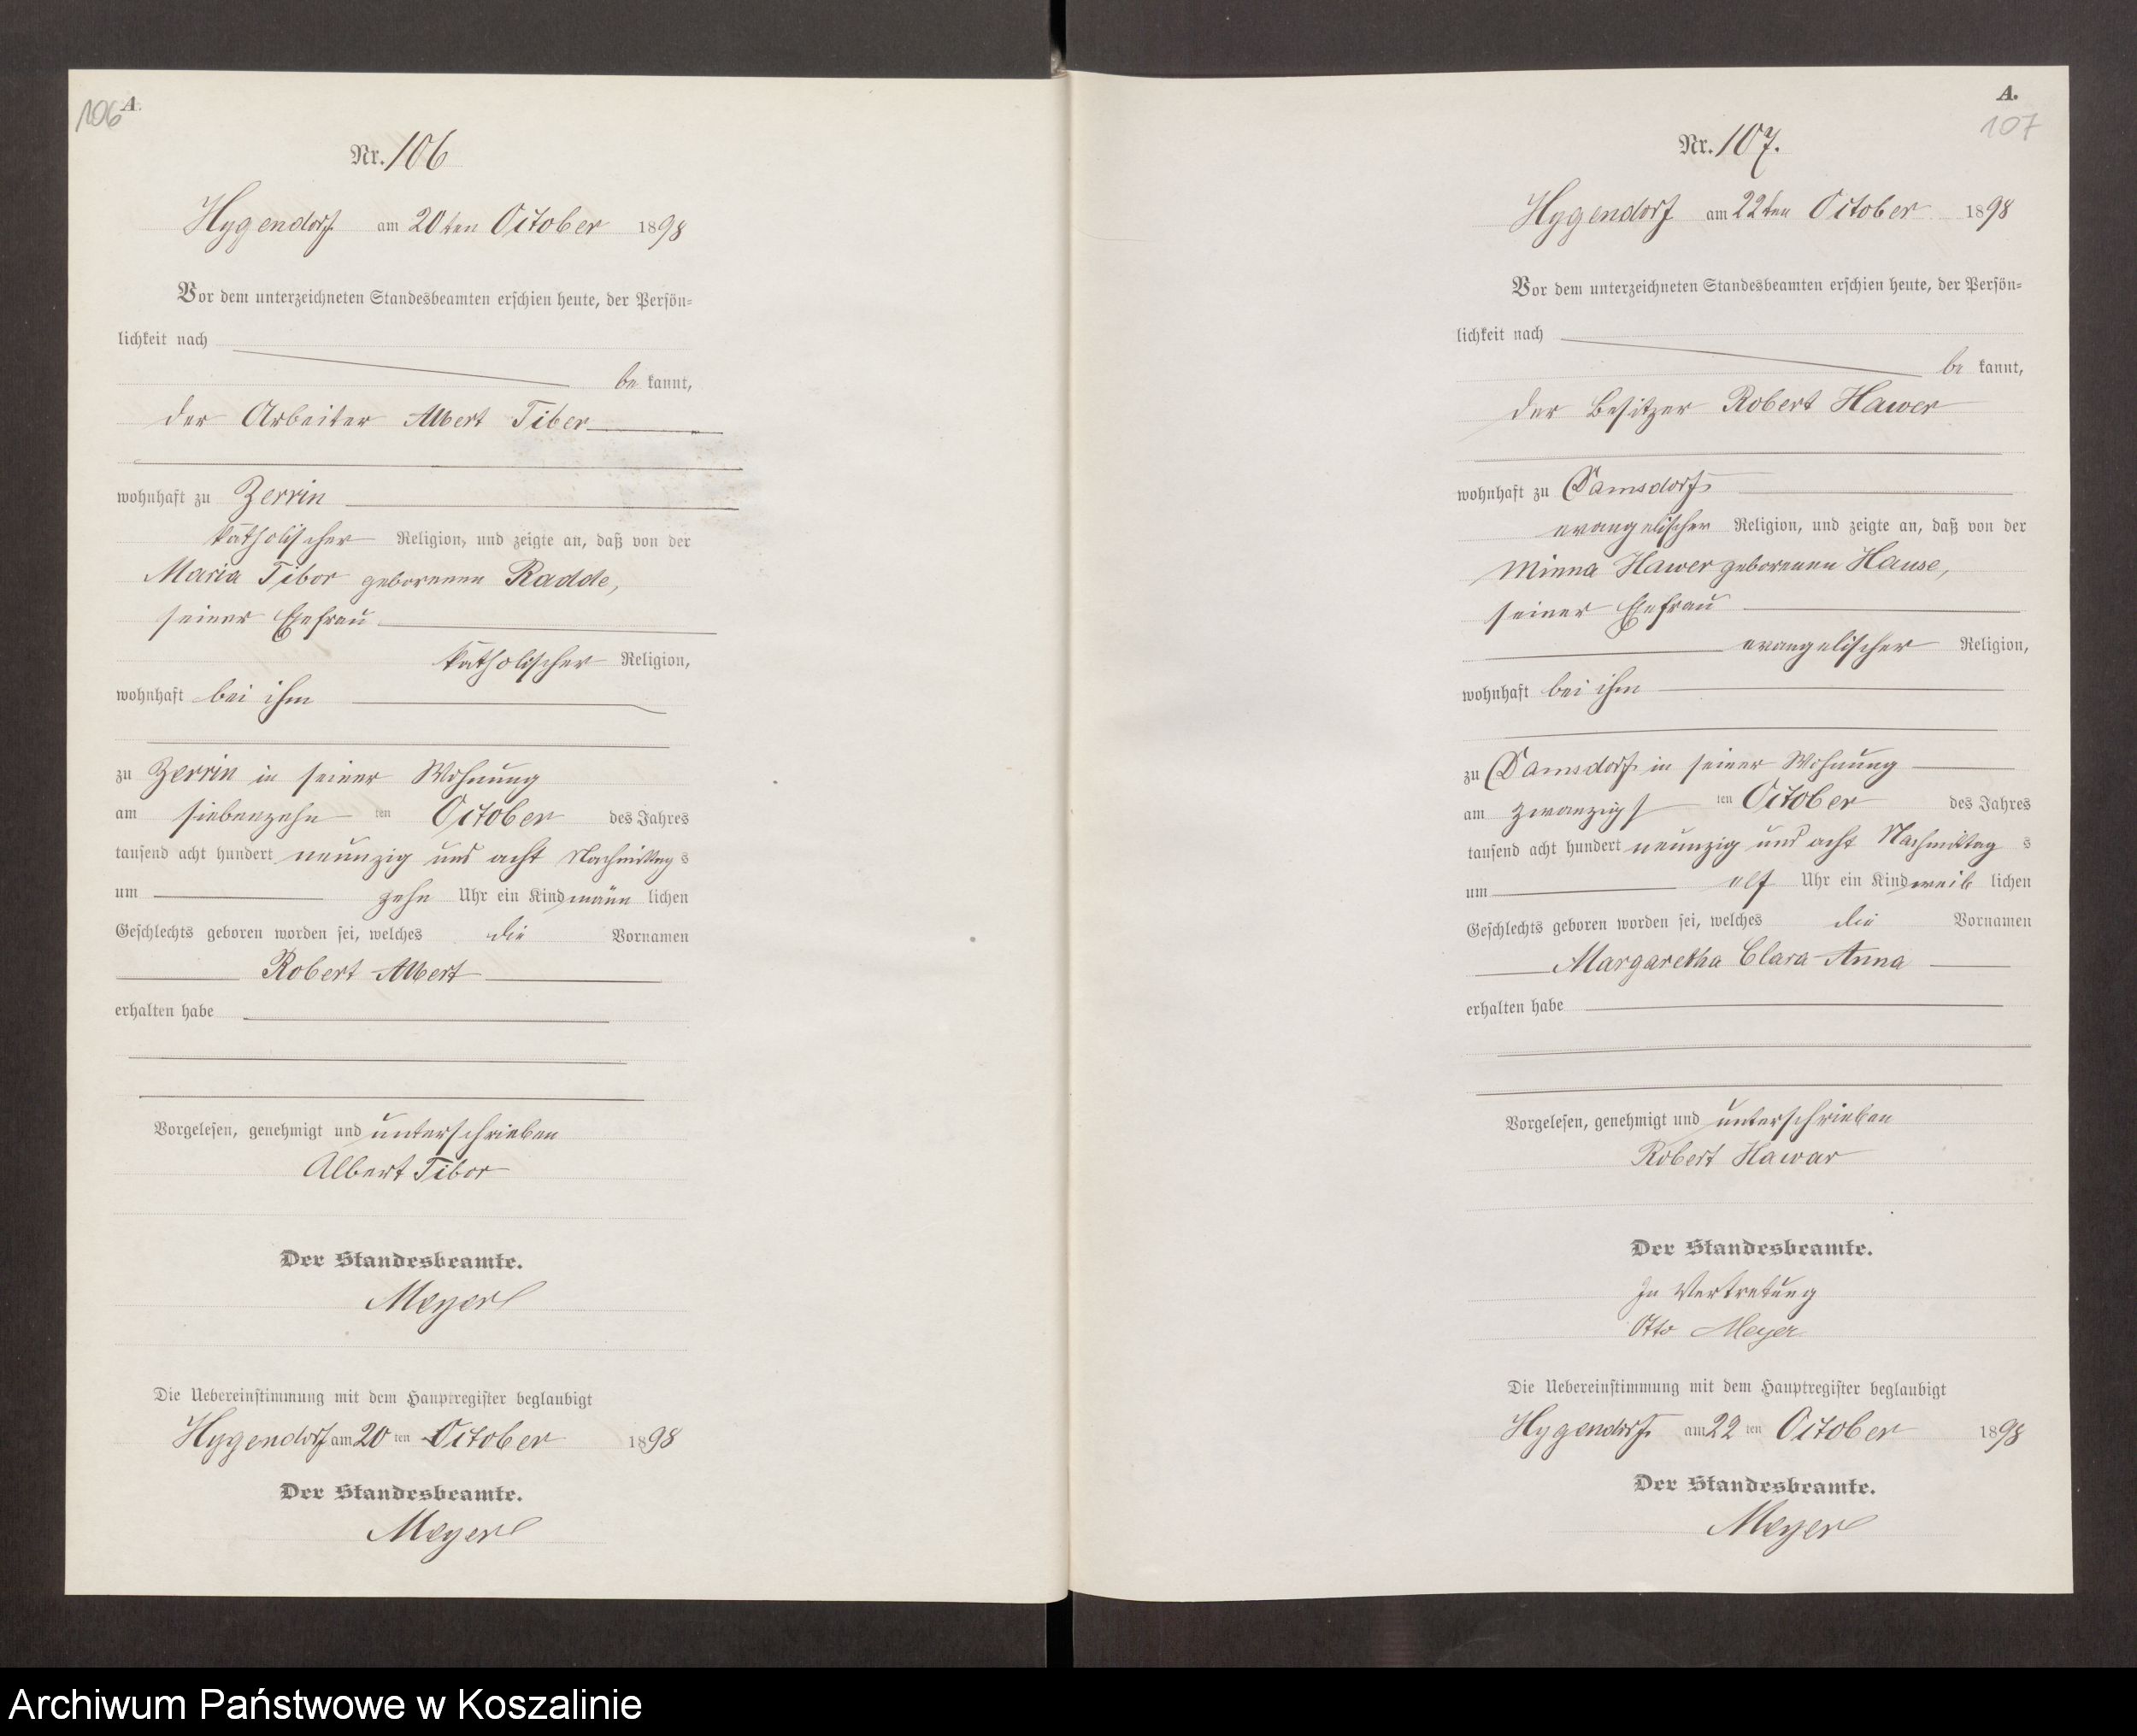 106
A.
Nr. 106
Hygendorf am 20ten October 1898
Vor dem unterzeichneten Standesbeamten erschien heute, der Persön=
lichkeit nach
be kannt,
der Arbeiter Albert Tiber
wohnhaft zu Zerrin
katholischer Religion, und zeigte an, daß von der
Maria Tibor geborenen Radde,
seiner Ehefrau
katholischer Religion,
wohnhaft bei ihm
zu Zerrin in seiner Wohnung
am siebenzehn ten October des Jahres
tausend acht hundert neunzig und acht Nachmittag s
um zehn Uhr ein Kind männ lichen
Geschlechts geboren worden sei, welches die Vornamen
Robert Albert
erhalten habe
Vorgelesen, genehmigt und unterschrieben
Albert Tibor
Der Standesbeamte.
Meyer
Die Uebereinstimmung mit dem Hauptregister beglaubigt
Hygendorf am 20 ten October 1898
Der Standesbeamte.
Meyer
A.
107
Nr. 107.
Hygendorf am 22ten October 1898
Vor dem unterzeichneten Standesbeamten erschien heute, der Persön=
lichkeit nach
be kannt,
der Besitzer Robert Hawer
wohnhaft zu Damsdorf
evangelischer Religion, und zeigte an, daß von der
Minna Hawer geborenen Hause,
seiner Ehefrau
evangelischer Religion,
wohnhaft bei ihm
zu Damsdorf in seiner Wohnung
am zwanzigs ten October des Jahres
tausend acht hundert neunzig und acht Nachmittag s
um elf Uhr ein Kind weib lichen
Geschlechts geboren worden sei, welches die Vornamen
Margaretha Clara Anna
erhalten habe
Vorgelesen, genehmigt und unterschrieben
Robert Hawar
Der Standesbeamte.
In Vertretung
Otto Meyer
Die Uebereinstimmung mit dem Hauptregister beglaubigt
Hygendorf am 22 ten October 1898
Der Standesbeamte.
Meyer
Archiwum Państwowe w Koszalinie